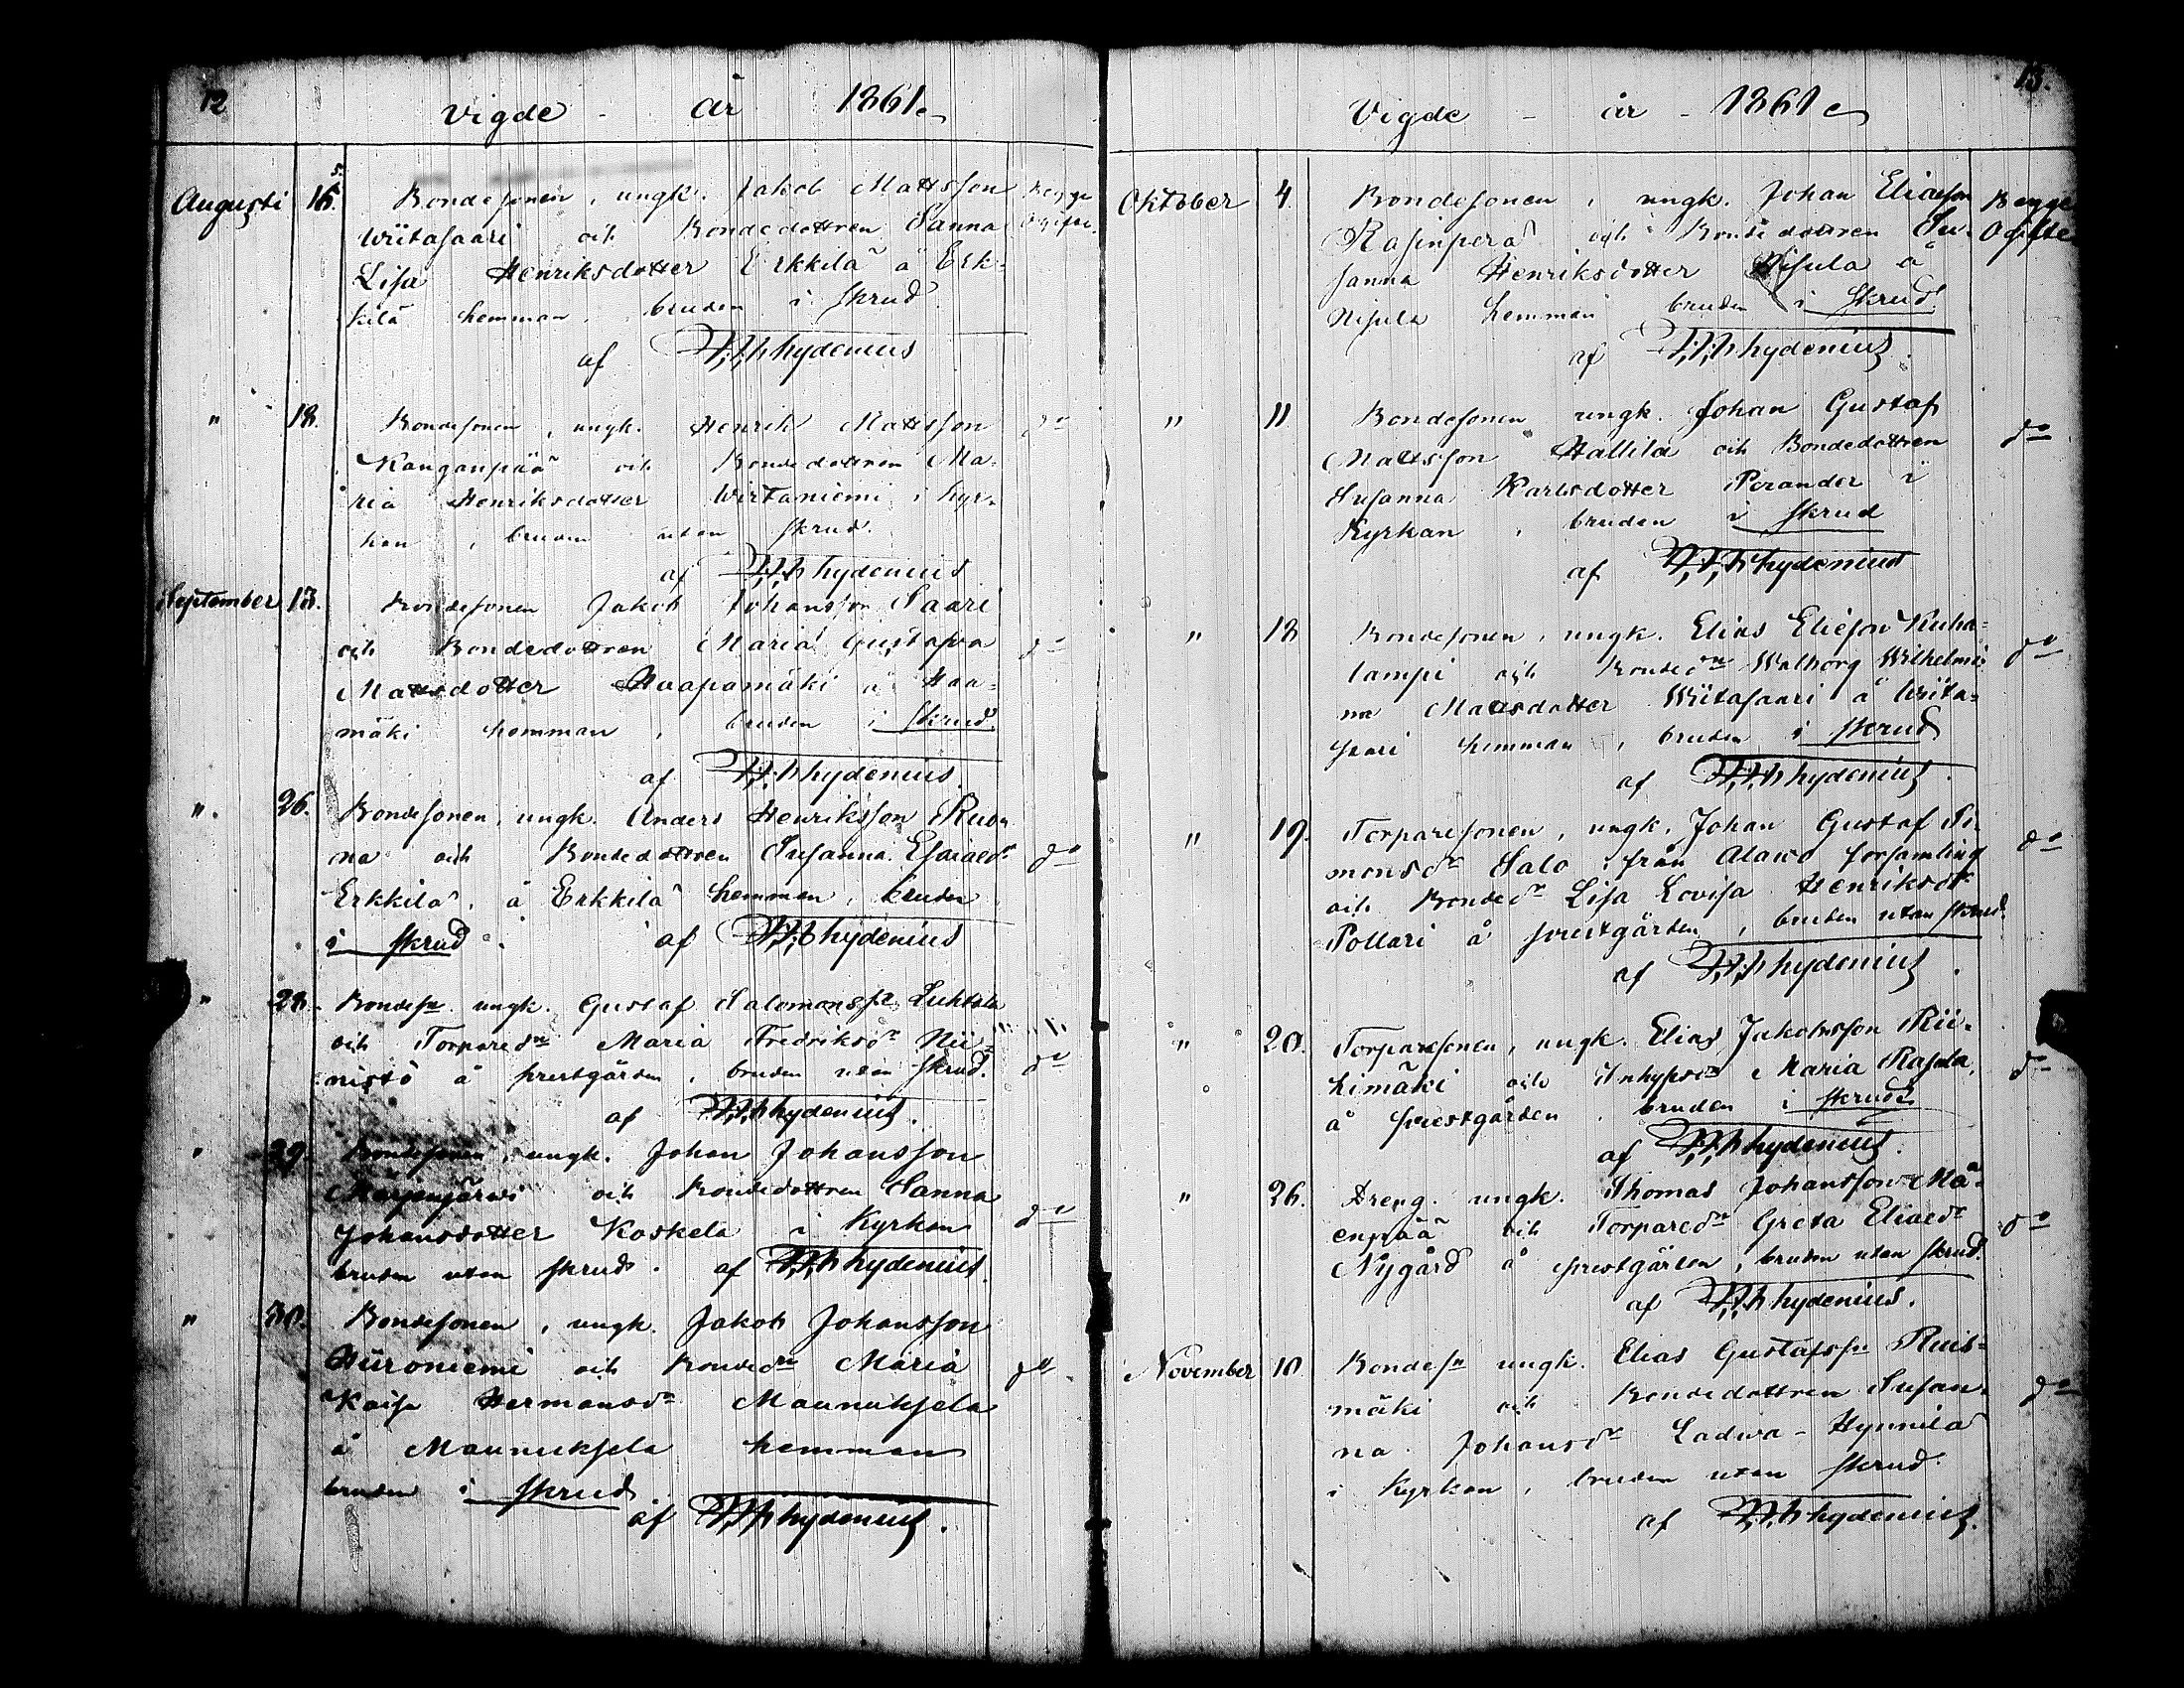 12
Vigde - år 1861
Augusti 16. Bondesonen, ungk. Jakob Mattsson Begge
Wiitasaari och Bondedottren Sanna Ogifte.
Lisa Henriksdotter Erkkilä å Erk-
kilä hemman, bruden i skrud
af hydenius
" 18. Bondesonen, ungk. Henrik Mattsson do
Kanganpää och Bondedottren Ma-
ria Henriksdotter Wirtaniemi i Kyr-
kan, bruden utan skrud.
af hydenius
September 13. Bondesonen Jakob Johansson Saari
och Bondedottren Maria Gustafva do
Mattsdotter Haapamäki å Haa-
mäki hemman, bruden i skrud
af hydenius.
". 26. Bondesonen, ungk. Anders Henriksson Ruo-
na och Bondedottren Susanna Esaiaedr do
Erkkilä, å Erkkilä hemman, bruden
i skrud. af hydenius
" 28. Bondesn ungk. Gustaf Salomonssn Luhtala
och Torparedn Maria Fredriksdr Nii-
nistö å prestgården, bruden utan skrud. do
af hydenius.
" 29. Bondesonen, ungk. Johan Johansson
Marjenjärwi och Bondedottren Sanna
Johansdotter Koskela i Kyrkan do
bruden utan skrud. af hydenius.
" 30. Bondesonen, ungk. Jakob Johansson
Hiironiemi och Bondedrn Maria do
Kaisa Hermansdr Maunuksela
å Maunuksela hemman
bruden i skrud
af hydenius.
13.
Vigde - år - 1861
Oktober 4. Bondesonen, ungk. Johan Eliasson Begge
Rasinperä och Bondedottren Su- Ogifte
sanna Henriksdotter Nisula å
Nisula hemman bruden i skrud
af hydenius.
" 11 Bondesonen ungk. Johan Gustaf
Mattsson Hallila och Bondedottren do
Susanna Karlsdotter Perander i
Kyrkan, bruden i skrud
af hydenius
" 18 Bondesonen, ungk. Elias Eliesson Kuha-
lampi och Bondedrn Walborg Wilhelmi- do
na Mattsdotter Wiitasaari å Wiita-
saari hemman, bruden i skrud
af hydenius.
" 19. Torparesonen, ungk. Johan Gustaf Si-
monsdr Salo, från Alawo församling do
och Bondedr Lisa Lovisa Henriksdr
Pollari å prestgården, bruden utan skrud.
af hydenius.
" 20. Torparesonen, ungk. Elias Jakobsson Rii-
himäki och Inhypsdr Maria Rasula, do
å prestgården, bruden i skrud
af hydenius.
" 26. Dreng. ungk. Thomas Johansson Mä-
enpää och Torparedr Greta Eliaedr do
Nygård å prestgården, bruden utan skrud.
af hydenius.
November 10 Bondesn ungk. Elias Gustafssn Ruis-
mäki och Bondedottren Susan- do
na Johansdr Ladwa-Hynnilä
i Kyrkan, bruden utan skrud.
af hydenius.